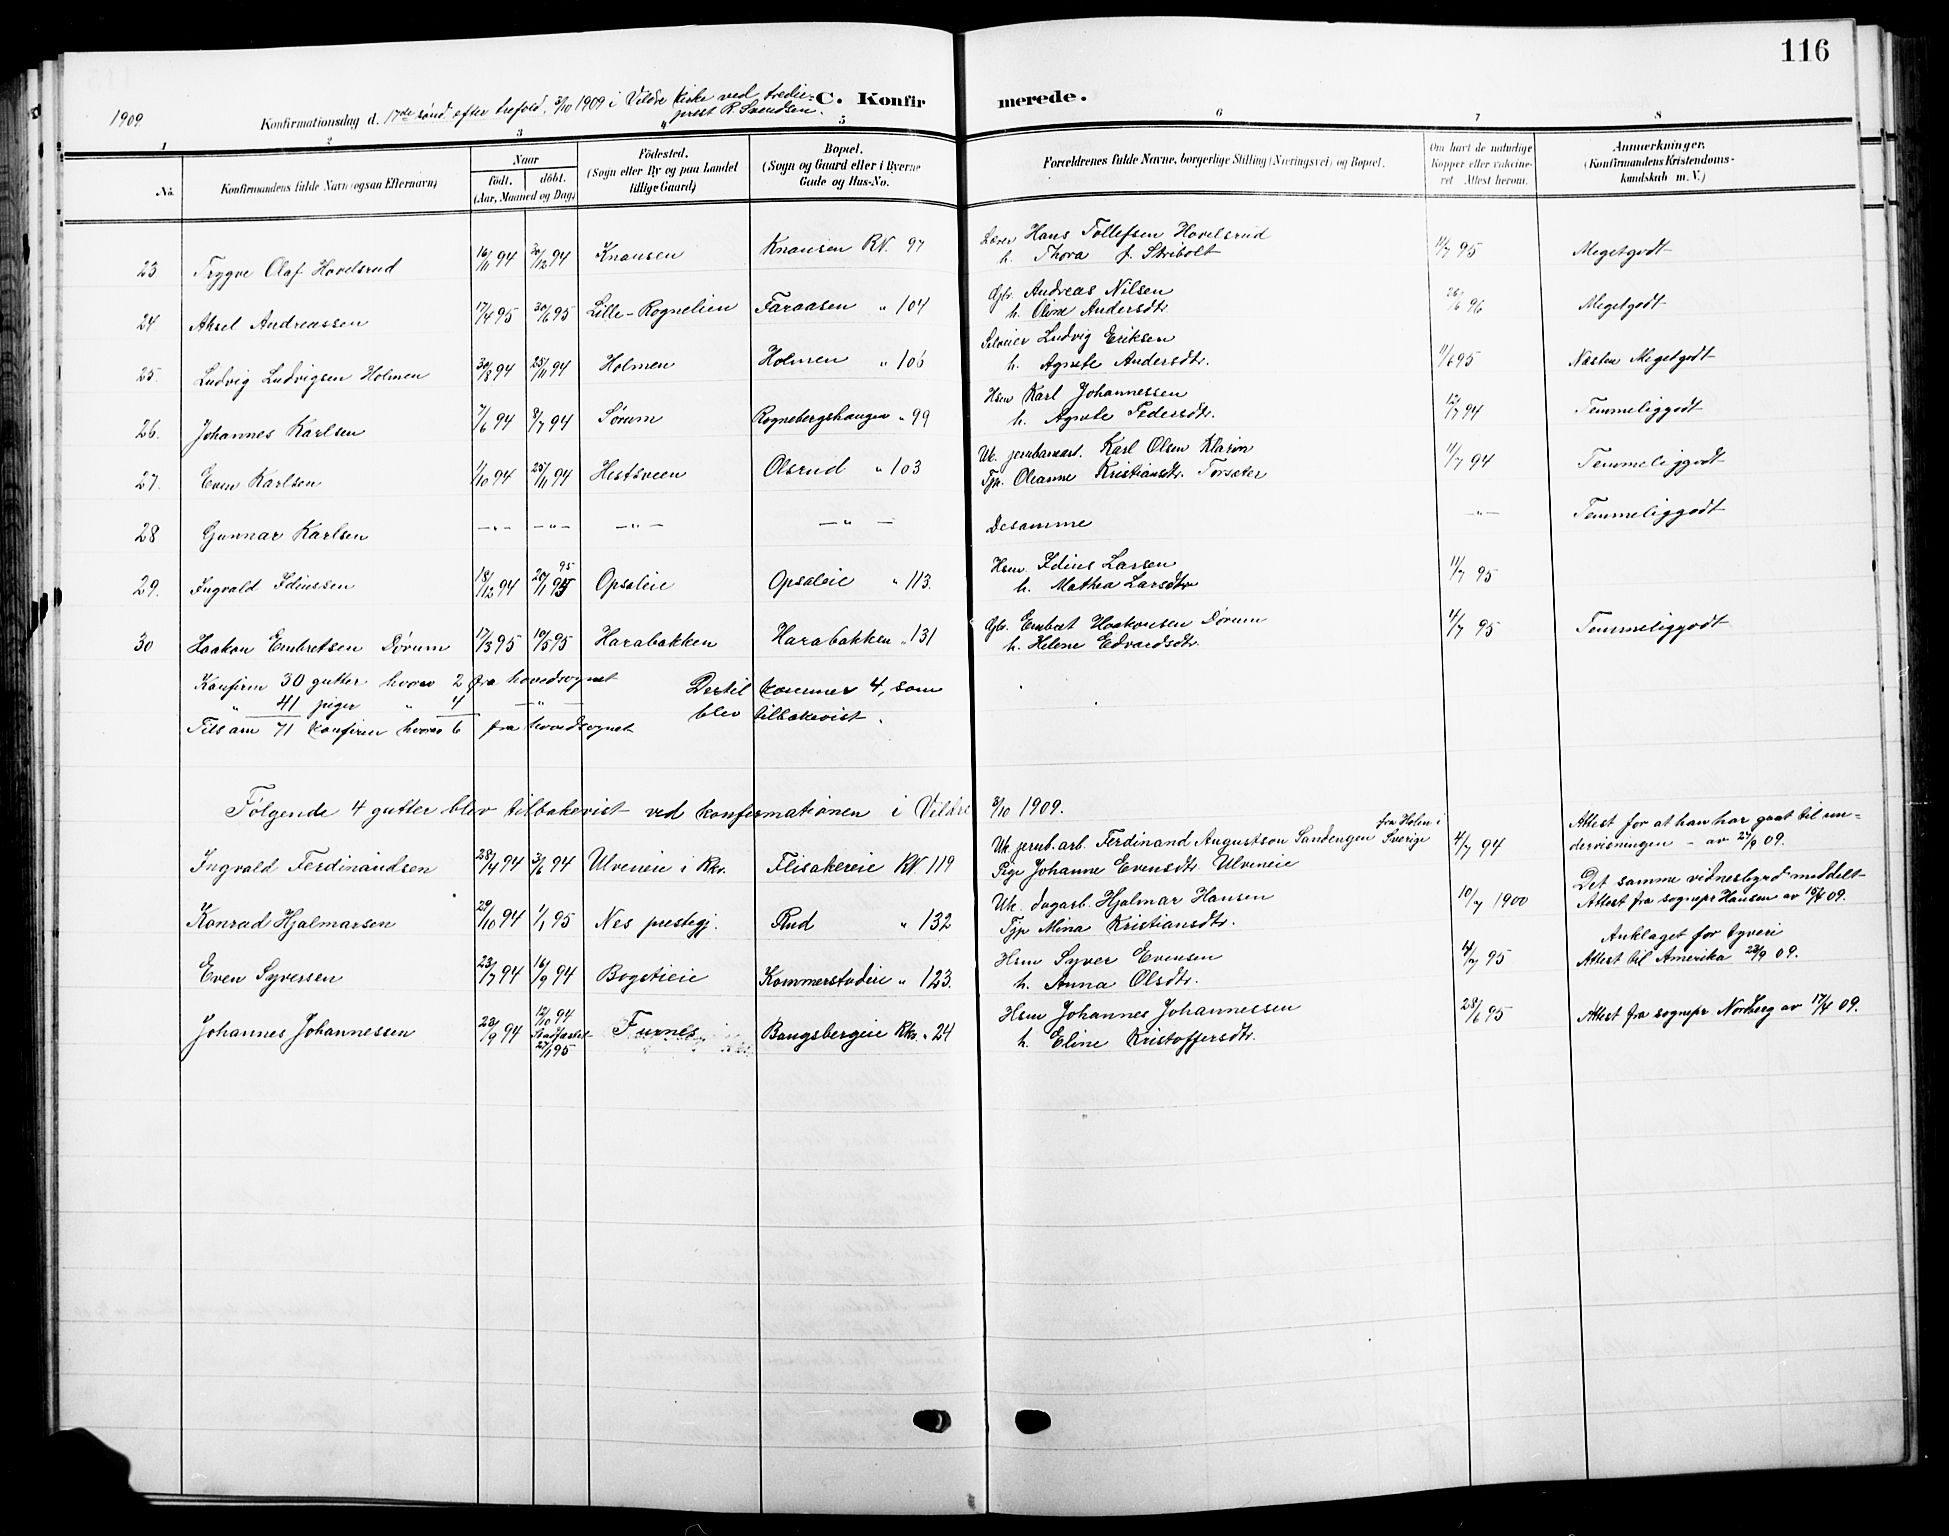 116
1909
Konfirmationsdag d. 17de sönd. efter trefold. 3/10 1909 i Vildre kirke ved tredie-
prest R.
C. Konfirmerede.
1 2 3 4 5 6 7 8
No.
Konfirmandens fulde Navn (ogsaa Efternavn)
Naar
født. døbt.
(Aar, Maaned og Dag)
Fødested.
(Sogn eller By og paa Landet
tillige Gaard)
Bopæl.
(Sogn og Gaard eller i Byerne
Gade og Hus-No.
Forældrenes fulde Navne, borgerlige Stilling (Næringsvei) og Bopæl.
Om havt de naturlige
Kopper eller vaccine-
ret Attest herom.
Anmerkninger.
(Konfirmandens Kristendoms-
kundskab m. V.)
23 Trygve Olaf Hovelsrud 16/11 94 30/12 94 Knausen Knausen RV. 97 Lærer Hans Tollefsen Hovelsrud 11/7 95 Megetgodt
h. Thora f. Stribolt
24 Aksel Andreassen 17/4 95 30/6 95 Lille-Rognelien Faraasen " 104 Gbr. Andreas Nilsen 26/6 96 Megetgodt
h. Oline Andersdtr.
25. Ludvig Ludvigsen Holmen 30/8 94 25/11 94 Holmen Holmen " 106 Selveier Ludvig Eriksen 11/6 95 Næsten Megetgodt
h. Agnete Andersdtr.
26. Johannes Karlsen 7/6 94 8/7 94 Sørum Rognebergshaugen " 99 Hsm Karl Johannessen 12/7 94 Temmeliggodt
h. Agnete Pedersdtr.
27. Even Karlsen 1/10 94 25/11 94 Hestsveen Olsrud " 103 Uk. jernbanearb. Karl Olsen 11/7 94 Temmeliggodt
Tjp. Oleanne Kristiansdtr. Torsæter
28 Gunnar Karlsen — " — — " — — " — — " — Desamme — " — Temmeliggodt
29. Ingvald Idiussen 18/12 94 20/1 95 95 Opsaleie Opsaleie " 113. Hsm. Idius Larsen 11/7 95
h. Mathea Larsdtr
30 Haakon Embretsen Dørum 17/3 95 10/5 95 Harabakken Harabakken " 131 Gbr. Embret Haakonsen Dørum 4/7 95 Temmeliggodt
h. Helene Edvardsdtr.
Konfirm 30 gutter hvorav 2 fra hovedsognet
" 41 piger " 4 — " —
Tilsam 71 konfirm hvorav 6 fra hovedsognet
Dertil kommer 4, som
blev tilbakevist.
Følgende 4 gutter blev tilbakevist ved konfirmationen i Vildre 3/10 1909.
Ingvald Ferdinandsen 28/4 94 3/6 94 Ulveneie i Rkr. Flisakereie RV 119 Uk. jernb. arb. Ferdinand Augustson Sandengen fra Holm i Sverige 4/7 94 Attest for at han har gaat til un-
Pige Johanne Evensdtr Ulveneie dervisningen – av 27/9 09.
Det samme vidnesbyrd meddelt
Konrad Hjalmarsen 29/10 94 1/1 95 Nes prestegj. Rud " 132 Uk. dagarb. Hjalmar Hansen 10/7 1900 Attest fra sognepr Hansen av 15/4 09.
Tjp Mina Kristiansdtr.
Anklaget for tyveri
Even Syversen 23/7 94 16/9 94 Bogstieie Kommerstadeie " 123. Hsm Syver Evensen 14/7 95 Attest til Amerika 22/9 09.
h. Anna Olsdtr.
Johannes Johannessen 23/9 94 12/10 94 Stadfæstet 27/1 95 Furnes Bangsbergeie Rkr. " 24 Hsm Johannes Johannessen 28/6 95 Attest fra sognepr Norberg av 17/4 09.
h. Eline Kristoffersdtr.